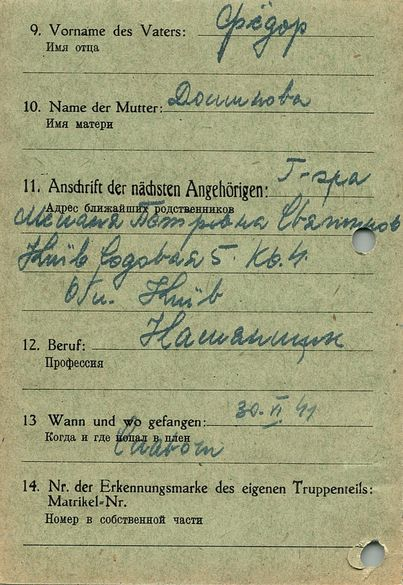 9. Vorname des Vaters: Фёдор
Имя отца
10. Name der Mutter:
Имя матери
11. Anschrift der nächsten Angehörigen: Г-гра
Адрес ближайших родственников
Петровна
Киів Садовая 5. Кв. 4.
Обл. Киів
12. Beruf:
Профессия
13 Wann und wo gefangen: 30. VI 41
Когда и где попал в плен
14. Nr. der Erkennungsmarke des eigenen Truppenteils:
Matrikel-Nr.
Номер в собственной части